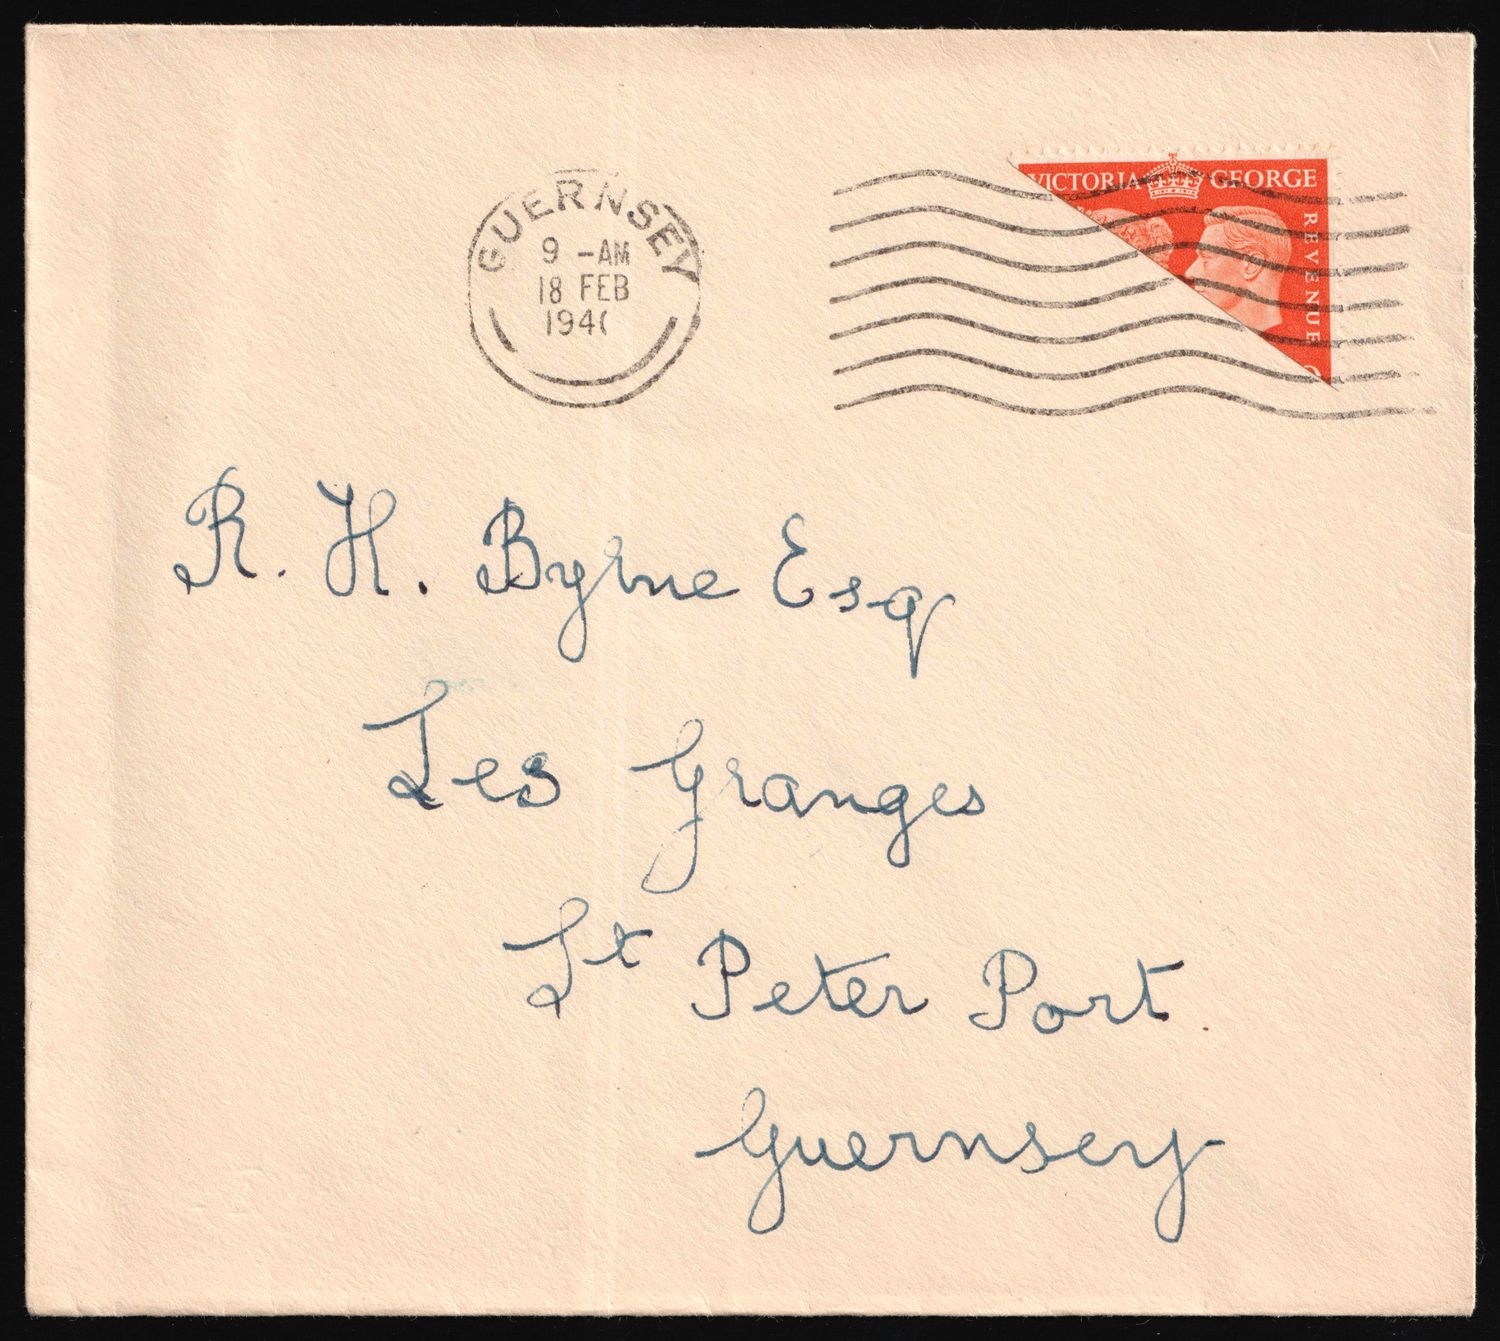 GUERNSEY
9 -AM
18 FEB
194
VICTORIA GEORGE
REVENUE
R. H. Byrne Esq
Les Granges
St Peter Port
Guernsey